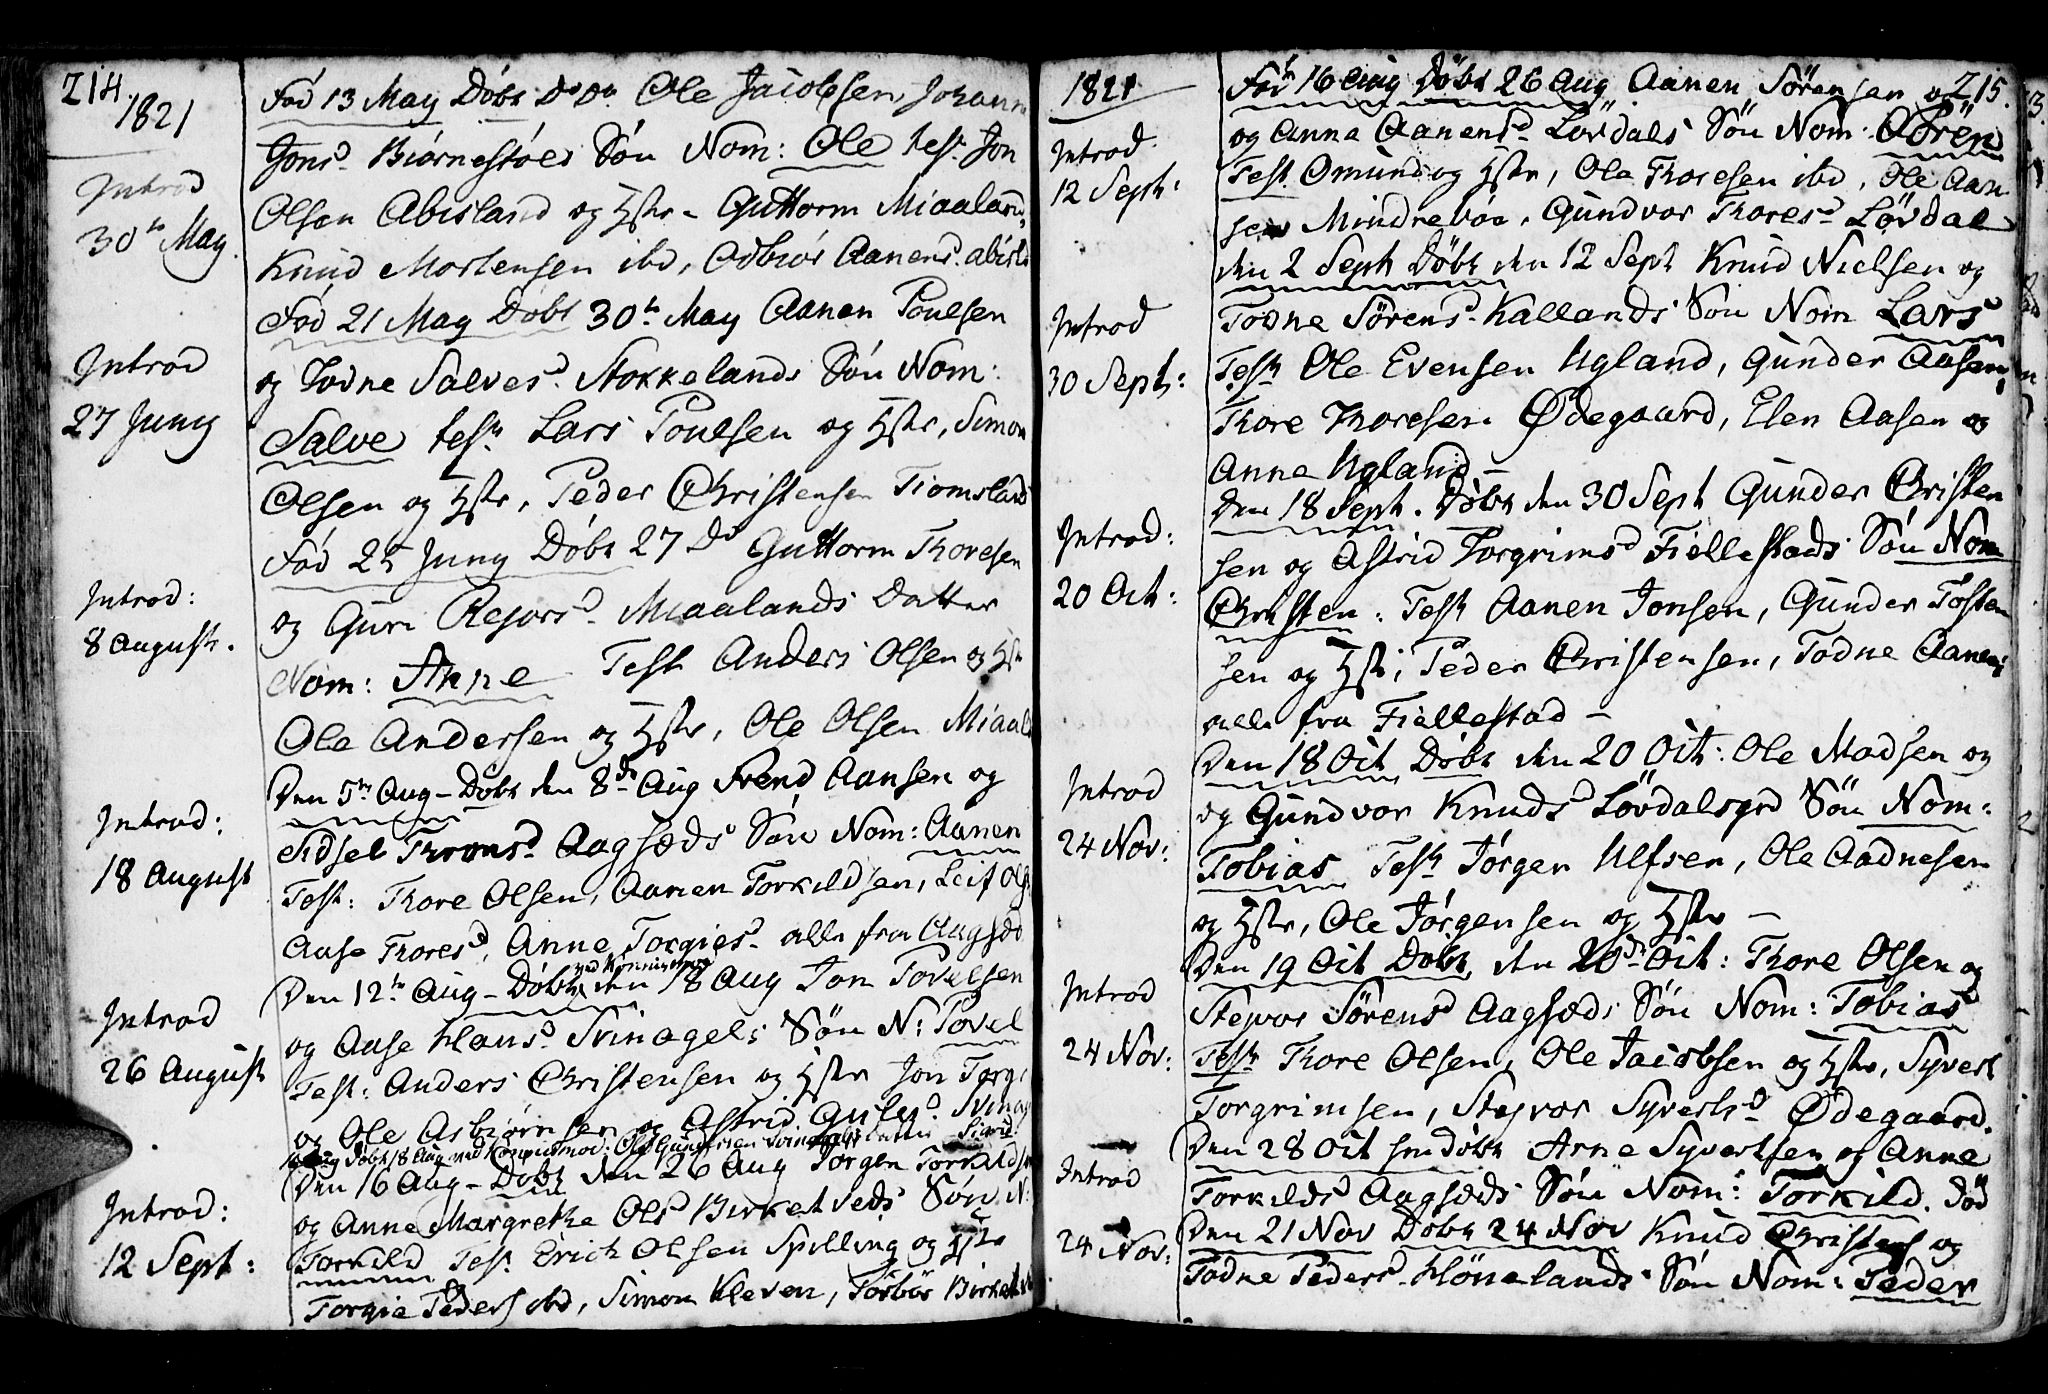 214.
1821
Introd
30te May.
Introd
27 Juny
Introd:
8 August.
Introd:
18 August
Introd
26 August
Introd:
12 Sept:
Fød 13 May Døbt Ole Jacobsen, Johann
Jonsd. Biørnestøls Søn Nom: Ole test. Jon
Olsen Abisland og Hstr. Guttorm Miaaland,
Knud Mortensen ibd, Odbiør Aanensd. abisl
Fød 21 May Døbt 30te May Aanen Poulsen
og Todne Salvesd. Stokkelands Søn Nom:
Salve test. Lars Poulsen og Hstr, Simon
Olsen og Hstr, Peder Christensen Tiomsland
Fød 25 Juny Døbt 27 do Guttorm Thoresen
og Guri Rejorsd. Miaalands Datter
Nom: Anne Test Anders Olsen og Hstr
Ole Andersen og Hstr, Ole Olsen Miaal
Den 5te Aug- Døbt den 8de Aug Svend Aansen og
Sidsel Thronsd. Aagsæds Søn Nom: Aanen
Test: Thore Olsen, Aanen Torkildsen, Leif Ols
Aase Thoresd, Anne Torgiesd. alle fra Augsæd
Den 12te Aug- Døbt den 18 Aug Jon Povelsen
og Aase Hansd. Svinagels Søn N: Povel
Test: Anders Christensen og Hstr Jon Torgi
og Ole Asbiørnsen og Astrid Svinag
Døbt 18 Aug Ole Gundersen Svinagels Datter Sigrid
Den 16 Aug- Døbt den 26 Aug Jørgen Torkilds
og Anne Margrethe Olsd Birketveds Søn N:
Torkild Test. Erich Olsen Spilling og Hstr
Torgie Peders ibd, Simon Kleven, Torbør Birketv
215.
1821
Introd
12 Sept:
Introd
30 Sept:
Introd:
20 Oct:
Introd
24 Nov:
Introd
24 Nov:
Introd
24 Nov:
Fød 16 Aug Døbt 26 Aug Aanen Sørensen og
og Anna Aanensd. Løvdals Søn Nom: Sören
Test. Omund og Hstr, Ole Thoresen ibd, Ole Aan
sen Mindrebøe, Gundvor Thoresd. Løvdal
den 2 Sept Døbt den 12 Sept Knud Nielsen og
Todne Sørensd. Kallands Søn Nom Lars
Test Ole Evensen Ugland, Gunder Aasen,
Thore Thoresen Ødegaard, Elen Aasen og
Anna Ugland
Den 18 Sept. Døbt den 30 Sept Gunder Christen
sen og Astrid Torgrimsd Fiellestads Søn Nom
Christen: Test Aanen Jonsen, Gunder Tosten
sen og Hstr, Peder Christensen, Todne Aanens
alle fra Fiellestad -
Den 18 Oct Døbt den 20 Oct: Ole Madsen og
og Gundvor Knudsd Lövdalsgrd Søn Nom:
Tobias Test Jørgen Ulfsen, Ole Aadnesen
og Hstr, Ole Jørgensen og Hstr -
Den 19 Oct Døbt, den 20de Oct: Thore Olsen og
Stejvor Sørensd Aagsæds Søn Nom: Tobias
Test Thore Olsen, Ole Jacobsen og Hstr, Syvert
Torgrimsen, Stejvor Syvertsd Ødegaard.
Den 28 Oct Arne Syvertsen og Anne
Torkildsd Aagsæds Søn Nom: Torkild. Död
Den 21 Nov Döbt 24 Nov Knud Christens og
Todne Pedersd. Hönelands Søn Nom: Peder